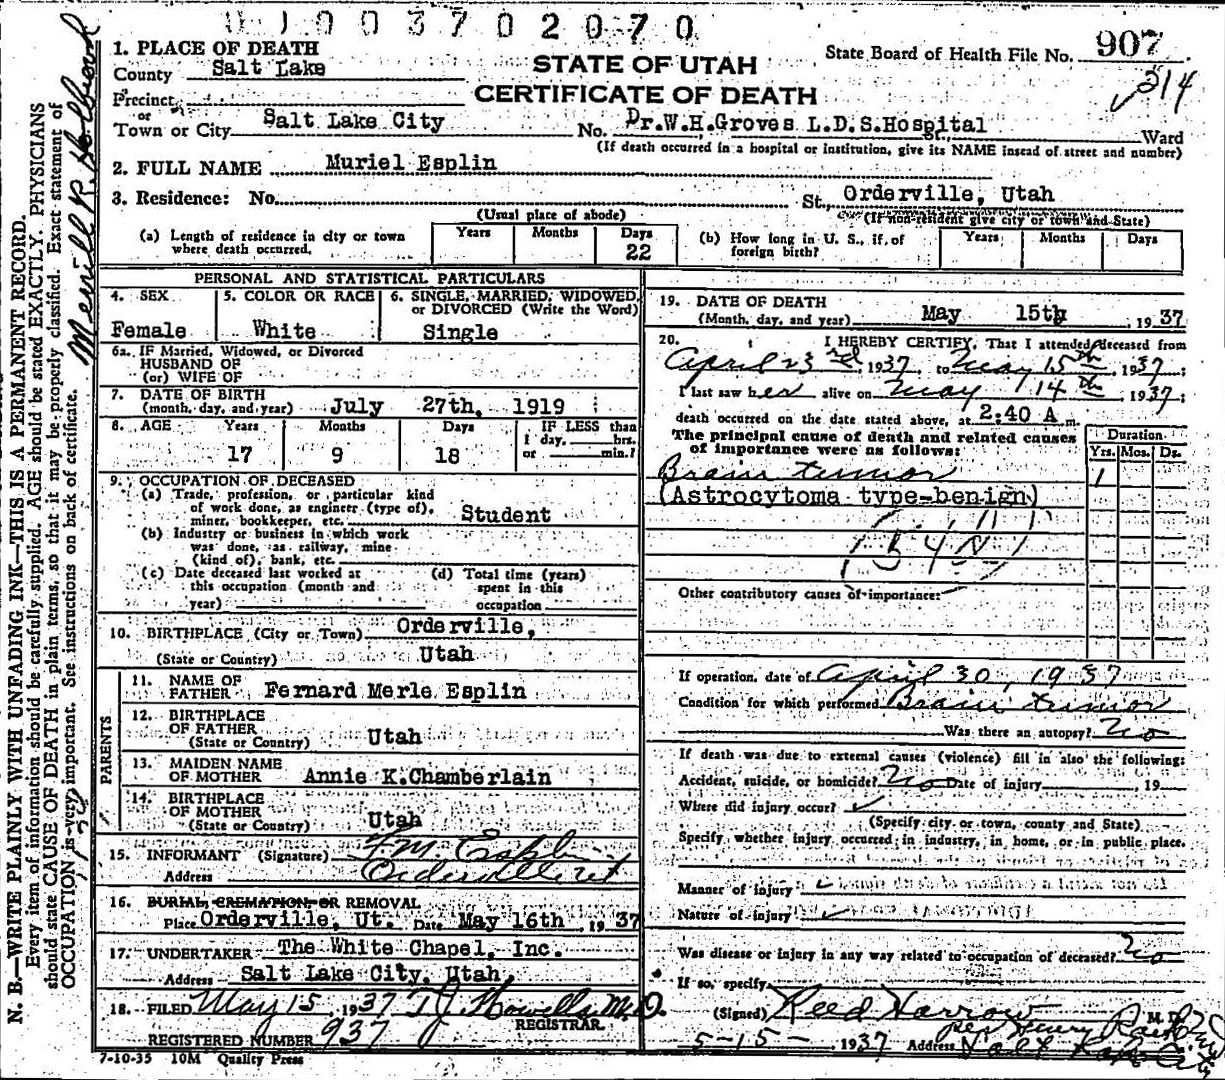 0100370 2070
1. PLACE OF DEATH
County Salt Lake
STATE OF UTAH
State Board of Health File No. 907
CERTIFICATE OF DEATH
314
Precinct
or
Town or City Salt Lake City No. Dr.W.H.Groves L.D.S.Hospital Ward
(If death occurred in a hospital or institution, give its NAME instead of street and number)
2. FULL NAME Muriel Esplin
3. Residence: No. St., Orderville, Utah
(Usual place of abode) (If non-resident give city or town and State)
(a) Length of residence in city or town where death occurred. Years Months Days 22
(b) How long in U. S., if of foreign birth? Years Months Days
PERSONAL AND STATISTICAL PARTICULARS
4. SEX Female
5. COLOR OR RACE White
6. SINGLE, MARRIED, WIDOWED, or DIVORCED (Write the Word) Single
6a. IF Married, Widowed, or Divorced
HUSBAND OF
(or) WIFE OF
7. DATE OF BIRTH
(month, day, and year) July 27th, 1919
8. AGE Years Months Days IF LESS than
1 day, hrs.
or min.?
17 9 18
9. OCCUPATION OF DECEASED
(a) Trade, profession, or particular kind
of work done, as engineer (type of),
miner, bookkeeper, etc. Student
(b) Industry or business in which work
was done, as railway, mine
(kind of), bank, etc.
(c) Date deceased last worked at
this occupation (month and
year)
(d) Total time (years)
spent in this
occupation
10. BIRTHPLACE (City or Town) Orderville,
(State or Country) Utah
PARENTS
11. NAME OF
FATHER Fernard Merle Esplin
12. BIRTHPLACE
OF FATHER
(State or Country) Utah
13. MAIDEN NAME
OF MOTHER Annie K.Chamberlain
14. BIRTHPLACE
OF MOTHER
(State or Country) Utah
15. INFORMANT (Signature) F M Esplin
Address Orderville Ut
16. BURIAL, CREMATION, OR REMOVAL
Place Orderville, Ut. Date May 16th, 1937
17. UNDERTAKER The White Chapel, Inc.
Address Salt Lake City, Utah,
18. FILED May 15, 1937 T J Howells M.D.
REGISTRAR
REGISTERED NUMBER 937
7-10-35 10M Quality Press
19. DATE OF DEATH
(Month, day, and year) May 15th, 1937
20. I HEREBY CERTIFY, That I attended deceased from
April 23rd, 1937 to May 15th, 1937;
I last saw her alive on May 14th, 1937;
death occurred on the date stated above, at 2:40 A m.
The principal cause of death and related causes
of importance were as follows:
Duration
Yrs. Mos. Ds.
Brain tumor 1
(Astrocytoma type-benign)
Other contributory causes of importance:
If operation, date of April 30, 1937
Condition for which performed Brain tumor
Was there an autopsy? No
If death was due to external causes (violence) fill in also the following:
Accident, suicide, or homicide? No Date of injury , 19
Where did injury occur?
(Specify city or town, county and State)
Specify whether injury occurred in industry, in home, or in public place.
Manner of injury
Nature of injury
Was disease or injury in any way related to occupation of deceased? No
If so, specify
(Signed) Reed Harrow M. D.
5-15- 1937 Address Salt Lake City
N. B.—WRITE PLAINLY WITH UNFADING INK—THIS IS A PERMANENT RECORD.
Every item of information should be carefully supplied. AGE should be stated EXACTLY. PHYSICIANS
should state CAUSE OF DEATH in plain terms, so that it may be properly classified. Exact statement of
OCCUPATION is very important. See instructions on back of certificate.
Merrill R Holbrook